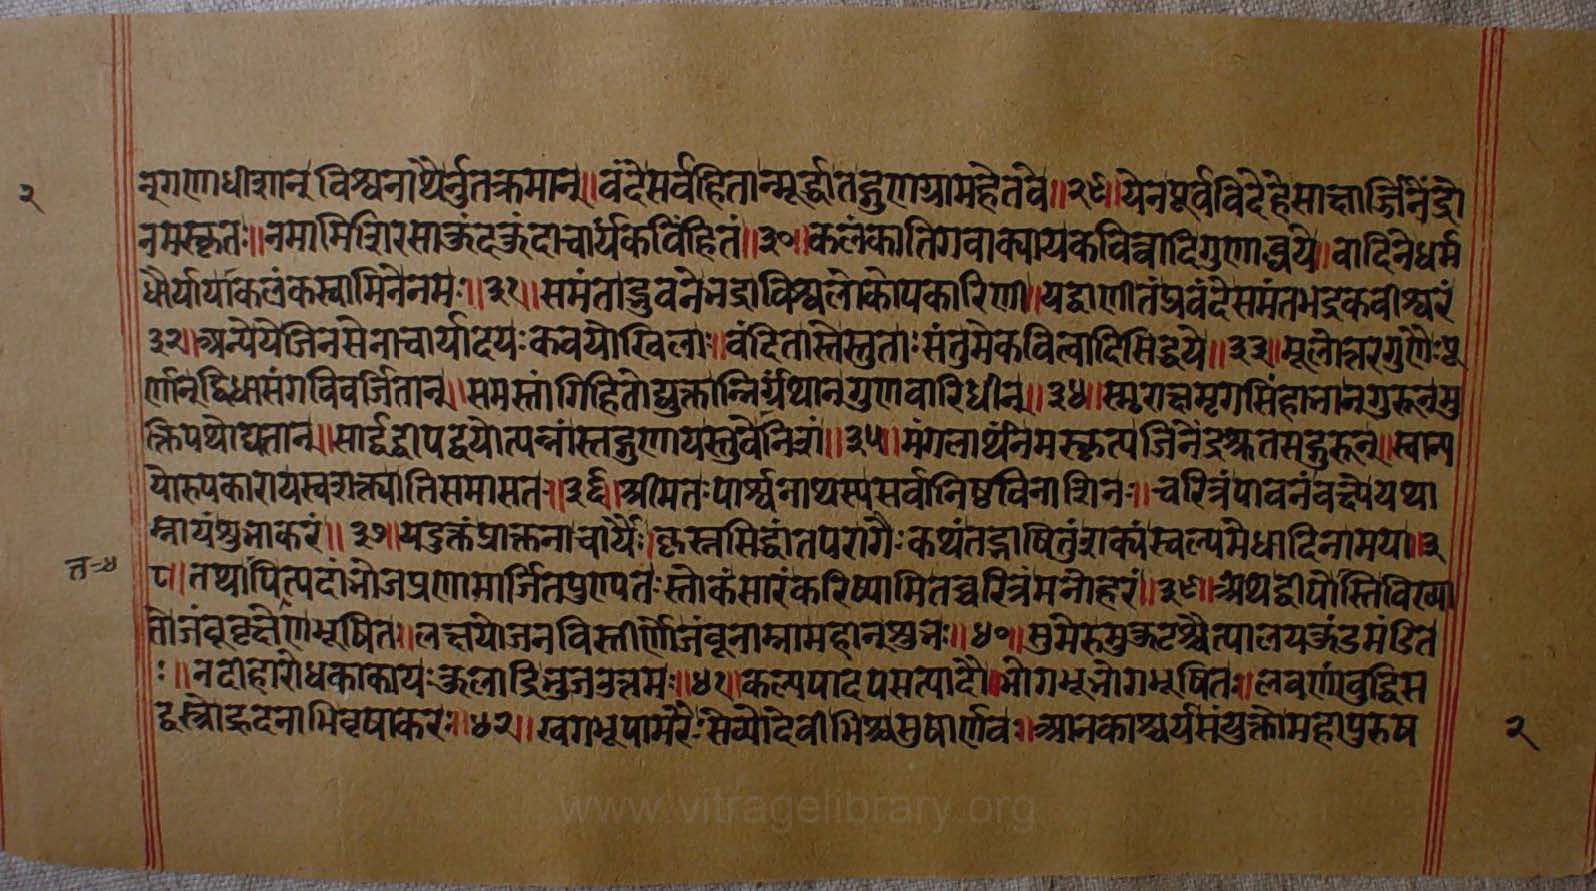 न्गणाधीशान् विश्वनाथैर्नुतक्रमान्॥वंदेसर्वहितान्मूर्द्ध्नातद्गुणग्रामहेतवे॥२९॥येनपूर्वविदेहेसाक्षाज्जिनेंद्रो
नमस्कृतः॥नमामिशिरसाकुंदकुंदाचार्यकविंहितं॥३०॥कलंकातिगवाक्यायकवित्वादिगुणाब्धये॥वादिनेधर्म
धौर्यार्याकलंकस्वामिनेनमः॥३१॥समंताद्भुवनेभद्राविश्वलोकोपकारिणी॥यद्वाणीतंप्रवंदेसमंतभद्रकवीश्वरं
३२॥अन्येयेजिनसेनाचार्यादयःकवयोखिलाः॥वंदितास्तेस्तुताःसंतुमेकवित्वादिसिद्धये॥३३॥मूलोत्तरगुणैःपू
र्णान्द्विधासंगविवर्जितान्॥समस्तांगिहितोद्युक्तान्निर्ग्रंथान्गुणवारिधीन्॥३४॥स्मराक्षमृगसिंहाभान्गुरून्मु
क्तिपथोद्यतान्॥सार्द्धद्वीपद्वयोत्पन्नांस्तद्गुणायस्तुवेनिशं॥३५॥मंगलार्थंनमस्कृत्यजिनेंद्रश्रुतसद्गुरून्॥स्वान्य
योरुपकारायस्वशक्त्यातिसमासतः॥३६॥श्रीमतःपार्श्वनाथस्यसर्वानिष्टविनाशिनः॥चरित्रंपावनंवक्ष्येयथा
म्नायंशुभाकरं॥३७॥यदुक्तंप्राक्तनाचार्यैःकृत्स्नसिद्धांतपरागैःकथंतद्भाषितुंशक्यंस्वल्पमेधादिनामया॥३
८॥तथापित्पदांभोजप्रणामार्जितपुण्यतःस्तोकंसारंकरिष्यामितच्चरित्रंमनोहरं॥३९॥अथद्वीपोस्तिविख्या
त-४
तोजंबूवृक्षेणभूषितः॥लक्षयोजनविस्तीर्णोजंबूनाम्नामहान्शुभः॥४०॥सुमेरुमुकुटश्चैत्यालयकुंडमंडित
ः॥नदीहारोधकाकायःकुलाद्रिभुजउत्तमः॥४१॥कल्पपादपसत्पादौ॥भोगभूभोगभूषितः॥लवणांबुद्धिस
द्वस्त्रोह्रदनाभिवृषाकरः॥४२॥खगभूपामरैःसेव्योदेवीभिश्चसुषार्णवः॥आनकाश्चर्यसंयुक्तोमहापुरुष
२
२
www.vitragelibrary.org